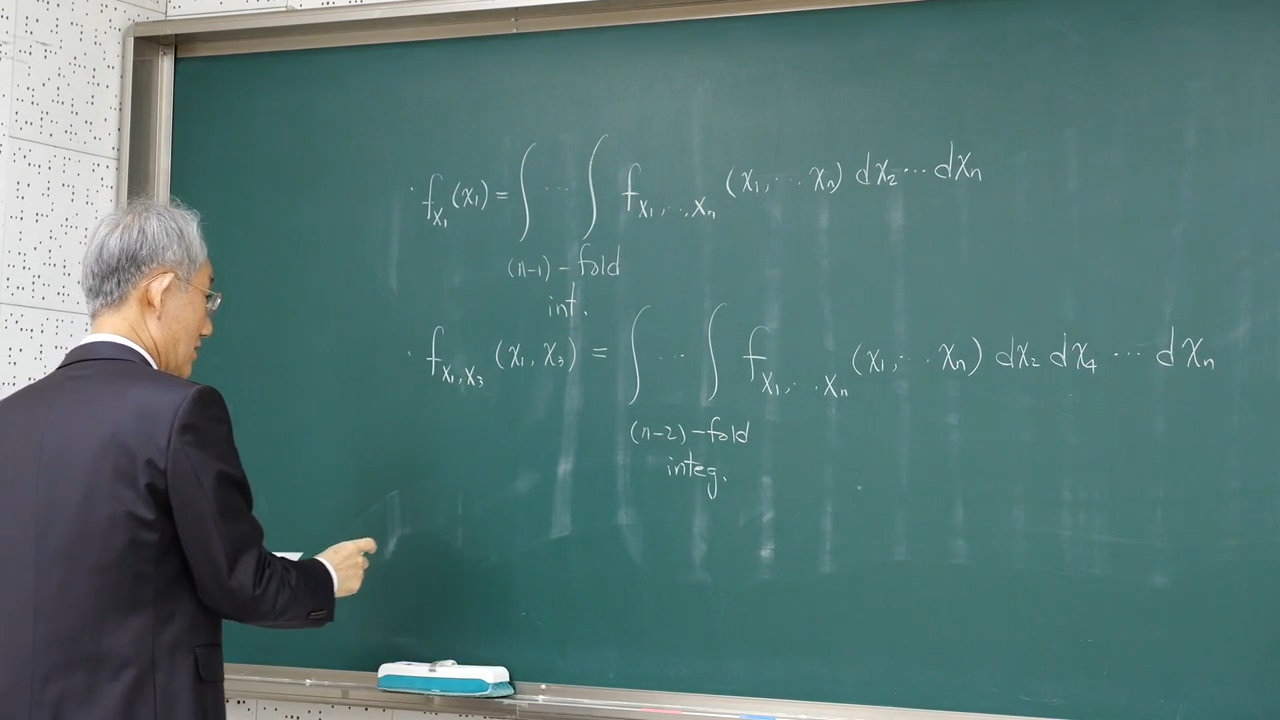 · f_{X₁}(x₁) = ∫ ··· ∫ f_{X₁,...,Xₙ} (x₁, ··· xₙ) dx₂ ··· dxₙ
(n-1) - fold
int.
· f_{X₁,X₃} (x₁, x₃) = ∫ ··· ∫ f_{X₁,...Xₙ} (x₁, ··· xₙ) dx₂ dx₄ ··· dxₙ
(n-2) - fold
integ.